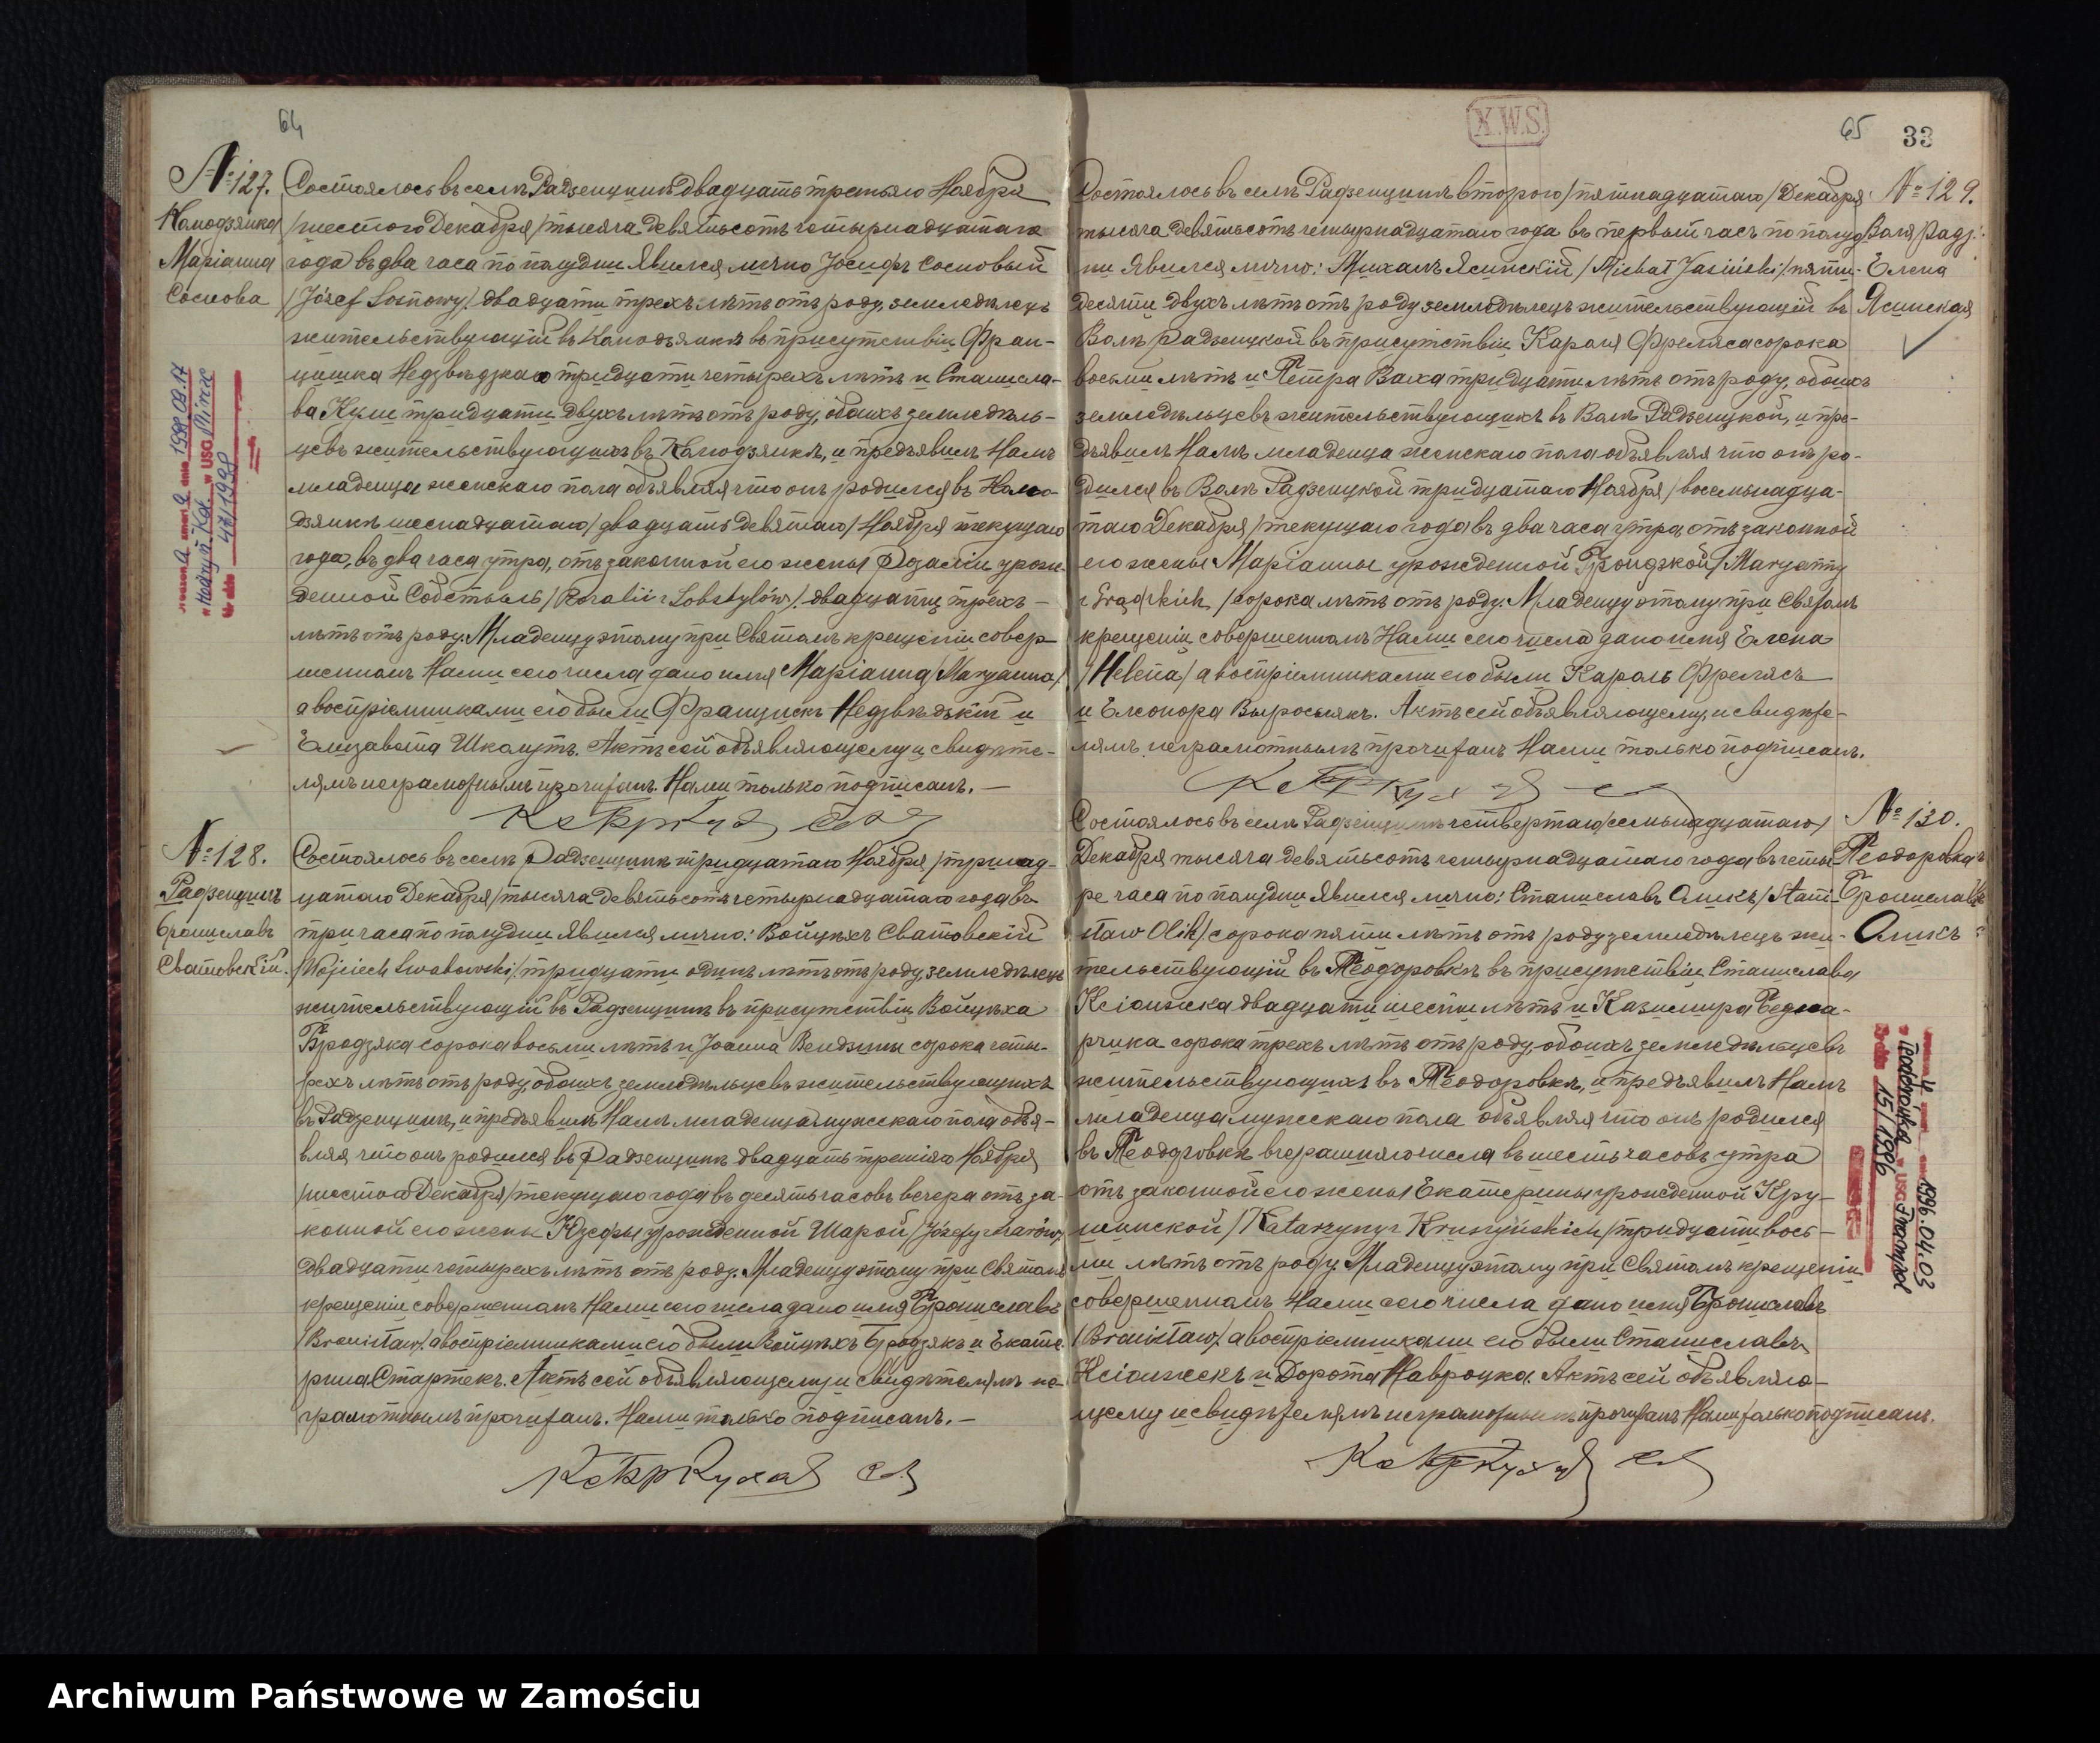 64
№ 127.
Колодзянка
Маріанна
Соснова
Состоялось въ селѣ Радзенцинѣ двадцать третьяго Ноября
/шестого Декабря/ тысяча девятьсотъ четырнадцатаго
года въ два часа по полудни. Явился лично Іосифъ Сосновый
/Józef Sosnowy/ двадцати трехъ лѣтъ отъ роду, земледѣлецъ
жительствующій въ Колодзянкѣ въ присутствіи Фран-
цишка Недзвѣдзкаго тридцати четырехъ лѣтъ и Станисла-
ва Кули тридцати двухъ лѣтъ отъ роду, обоихъ земледѣль-
цевъ жительствующихъ въ Колодзянкѣ, и предъявилъ Намъ
младенца женскаго пола объявляя что онъ родился въ Коло-
дзянкѣ шеснадцатаго /двадцать девятаго/ Ноября текущаго
года, въ два часа утра, отъ законной его жены Розаліи урож-
денной Собстыль /Rozalii z Sobstylów/ двадцати трехъ
лѣтъ отъ роду. Младенцу этому при Святомъ крещеніи совер-
шенномъ Нами сего числа дано имя Маріанна /Maryanna/
а воспріемниками его были Францискъ Недзвѣдзкій и
Елизавета Школутъ. Актъ сей объявляющему и свидѣте-
лямъ неграмотнымъ прочитанъ. Нами только подписанъ.
№ 128.
Радзенцинъ
Брониславъ
Сватовскій.
Состоялось въ селѣ Радзенцинѣ тридцатаго Ноября /тринад-
цатаго Декабря/ тысяча девятьсотъ четырнадцатаго года въ
три часа по полудни. Явился лично: Войцѣхъ Сватовскій
/Wojciech Swatowski/ тридцати одинъ лѣтъ отъ роду, земледѣлецъ
жительствующій въ Радзенцинѣ въ присутствіи Войцѣха
Бродзяка сорока восьми лѣтъ и Іоанна Вендзины сорока четы-
рехъ лѣтъ отъ роду, обоихъ земледѣльцевъ жительствующихъ
въ Радзенцинѣ, и предъявилъ Намъ младенца мужскаго пола объя-
вляя что онъ родился въ Радзенцинѣ двадцать третяго Ноября
/шестого Декабря/ текущаго года въ десять часовъ вечера отъ за-
конной его жены Юзефы урожденной Шарой /Józefy z Szarów/
двадцати четырехъ лѣтъ отъ роду. Младенцу этому при Святомъ
крещеніи совершенномъ Нами сего числа дано имя Брониславъ
/Bronisław/ а воспріемниками его были Войцѣхъ Бродзякъ и Екате-
рина Стартекъ. Актъ сей объявляющему и свидѣтелямъ не-
грамотнымъ прочитанъ. Нами только подписанъ.
X.W.S.
65
33
№ 129.
Воля Радз.
Елена
Ясинская
Состоялось въ селѣ Радзенцинѣ второго /пятнадцатаго/ Декабря
тысяча девятьсотъ четырнадцатаго года въ первый часъ по полуд-
ни. Явился лично: Михалъ Ясинскій /Michał Jasiński/ пяти-
десяти двухъ лѣтъ отъ роду земледѣлецъ жительствующій въ
Волѣ Радзенцкой въ присутствіи Кароля Фреляса сорока
восьми лѣтъ и Петра Ваха тридцати лѣтъ отъ роду, обоихъ
земледѣльцевъ жительствующихъ въ Волѣ Радзенцкой, и пре-
дъявилъ Намъ младенца женскаго пола объявляя что онъ ро-
дился въ Волѣ Радзенцкой тридцатаго Ноября /восемьнадца-
таго Декабря/ текущаго года въ два часа утра, отъ законной
его жены Маріанны урожденной Грондзкой /Maryanny
z Grądzkich/ сорока лѣтъ отъ роду. Младенцу этому при Святомъ
крещеніи совершенномъ Нами сего числа дано имя Елена
/Helena/ а воспріемниками его были Кароль Фрелясъ
и Елеонора Выросьлякъ. Актъ сей объявляющему и свидѣте-
лямъ неграмотнымъ прочитанъ Нами только подписанъ.
№ 130.
Теодоровка
Брониславъ
Оликъ
Состоялось въ селѣ Радзенцинѣ четвертаго /семьнадцатаго/
Декабря тысяча девятьсотъ четырнадцатаго года въ четы-
ре часа по полудни. Явился лично: Станиславъ Оликъ /Stani-
sław Olik/ сорока пяти лѣтъ отъ роду земледѣлецъ жи-
тельствующій въ Теодоровкѣ въ присутствіи Станислава
Ксіонжека двадцати шести лѣтъ и Казимира Бедна-
рчика сорока трехъ лѣтъ отъ роду, обоихъ земледѣльцевъ
жительствующихъ въ Теодоровкѣ, и предъявилъ Намъ
младенца мужскаго пола объявляя что онъ родился
въ Теодоровкѣ вчерашняго числа въ шесть часовъ утра
отъ законной его жены Екатерины урожденной Кру-
шинской /Katarzyny z Kruszyńskich/ тридцати вось-
ми лѣтъ отъ роду. Младенцу этому при Святомъ крещеніи
совершенномъ Нами сего числа дано имя Брониславъ
/Bronisław/ а воспріемниками его были Станиславъ
Ксіонжекъ и Дорота Навроцка. Актъ сей объявляю-
щему и свидѣтелямъ неграмотнымъ прочитанъ Нами только подписанъ.
1996.04.03
Teodorówka w USC Frampol
15/1996
Archiwum Państwowe w Zamościu